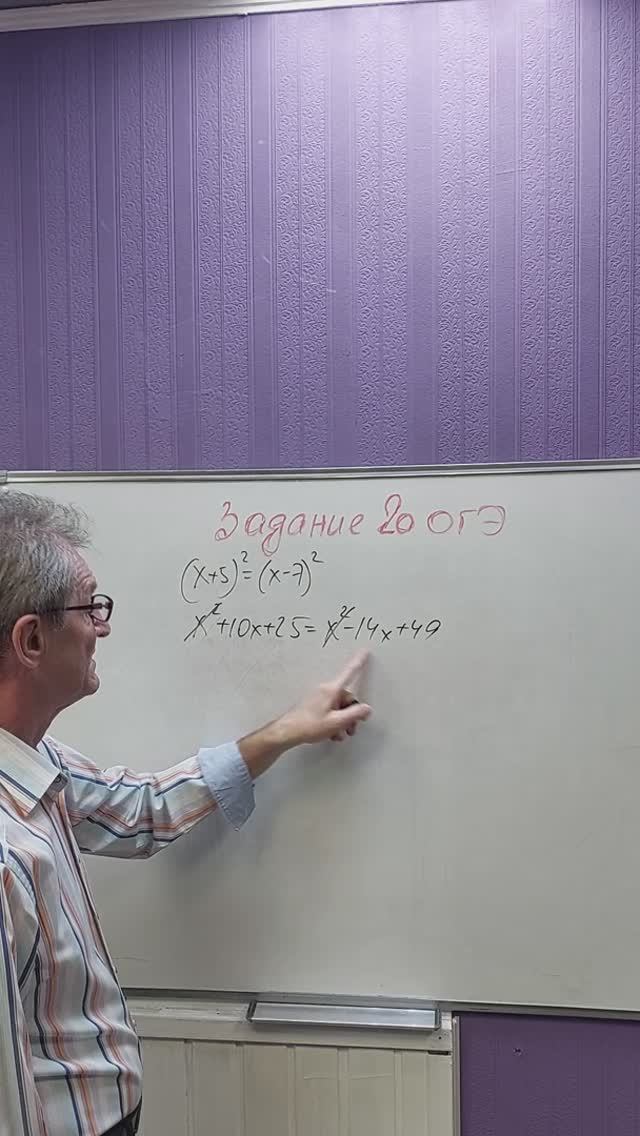 Задание 20 ОГЭ
(x+5)²=(x-7)²
x²+10x+25=x²-14x+49